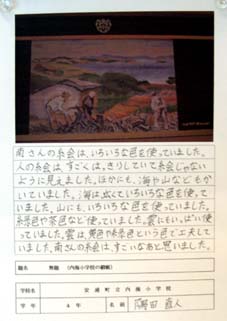 南さんの糸会は、いろいろな色を使っていました。
人の糸会は、すごくは、きりしていて糸会じゃない
ように見えました。ほかにも、海や山などもか
いていました。海は広くていろいろな色を使って
いました。山にもいろいろな色を使っていました。
緑色や茶色など使っていました。雲にもいっぱい使
っていました。雲は黄色や緑色という色で工夫して
いました。南さんの糸会は、すごいなあと思いました。
題名 無題 (内海小学校の緞帳)
学校名 安浦町立内海小学校
学年 4年 名前 直人